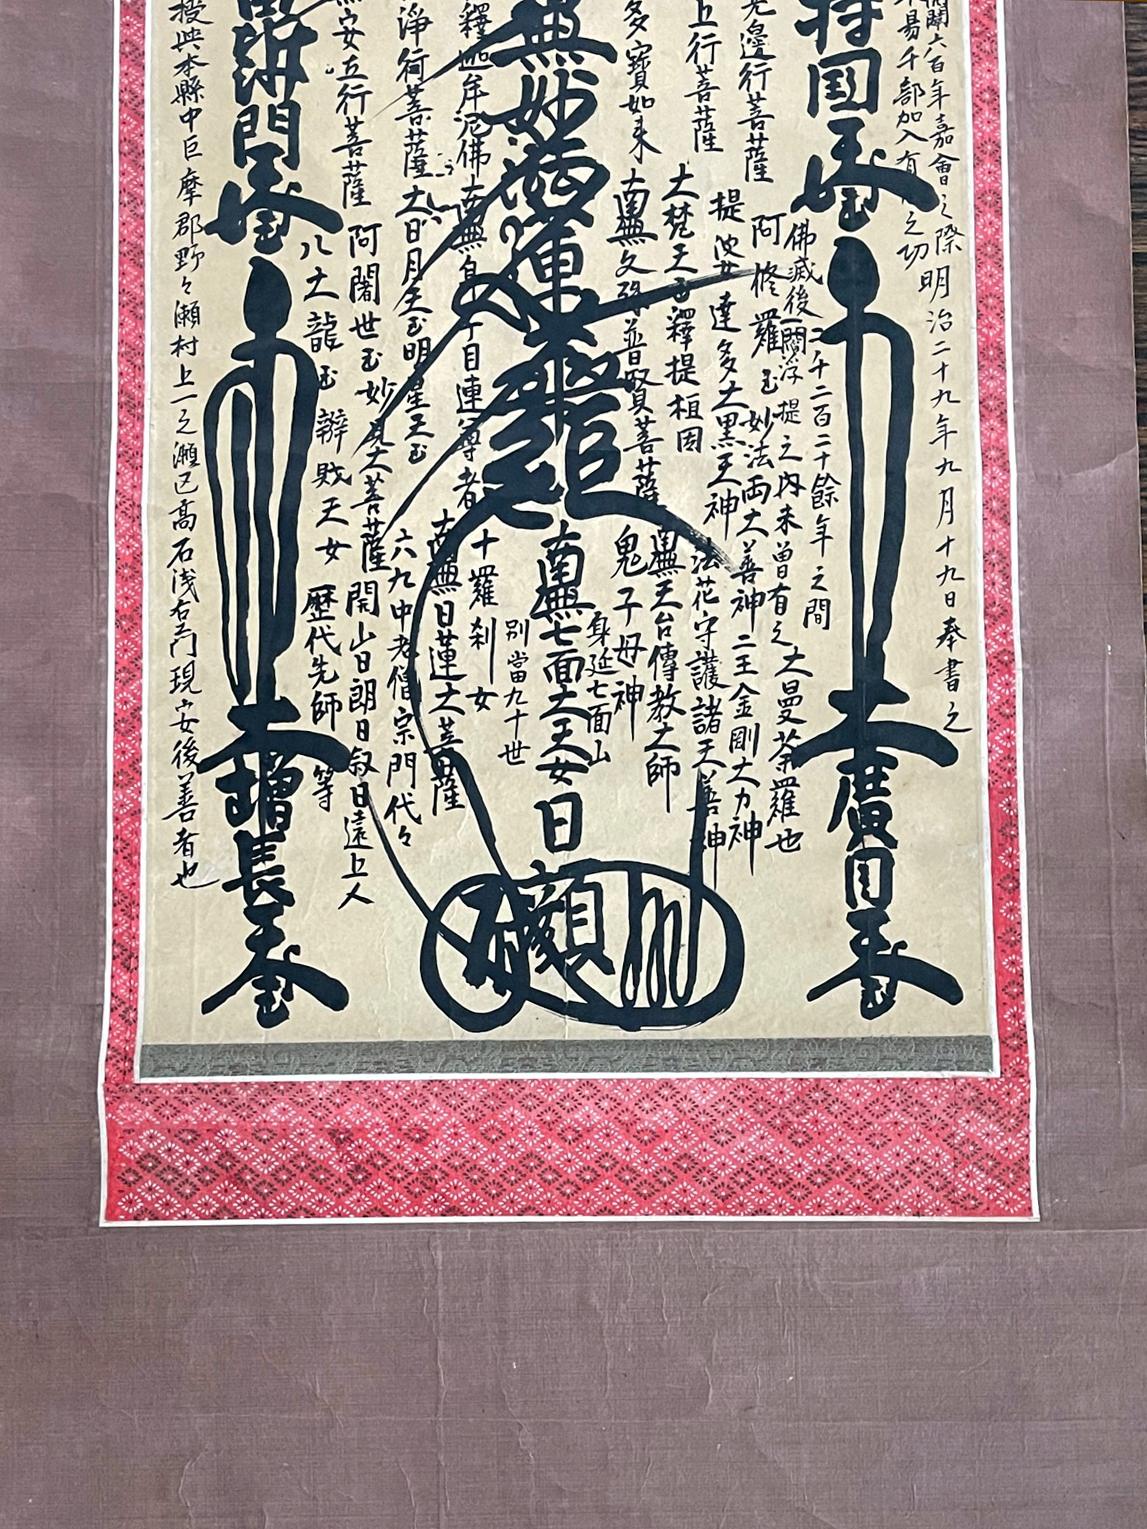 開闢六百年嘉會之際明治二十九年九月十九日奉書之
易千部加入有之功
持国天王
大廣目天王
佛滅後二千二百二十餘年之間
一閻浮提之内未曾有之大曼荼羅也
无邊行菩薩
阿修羅王
妙法両大善神
二王金剛大力神
上行菩薩
提婆達多
大黒天神
法花守護諸天善神
大梵天王
釋提桓因
南無天台傳教大師
多寶如来
南無文殊普賢菩薩
鬼子母神
身延七面山
無妙法蓮華経
南無七面大天女
日顗
別當九十世
釋迦牟尼佛
南無身子目連尊者
十羅刹女
南無日蓮大菩薩
淨行菩薩
大日月天王明星天王
六九中老僧宗門代々
安立行菩薩
阿闍世王
妙見大菩薩
開山日朗日叙日遠上人
八大龍王
辨財天女
歴代先師等
毘沙門天王
大増長天王
授與本縣中巨摩郡野々瀬村上一之瀬区高石浅右衛門現安後善者也